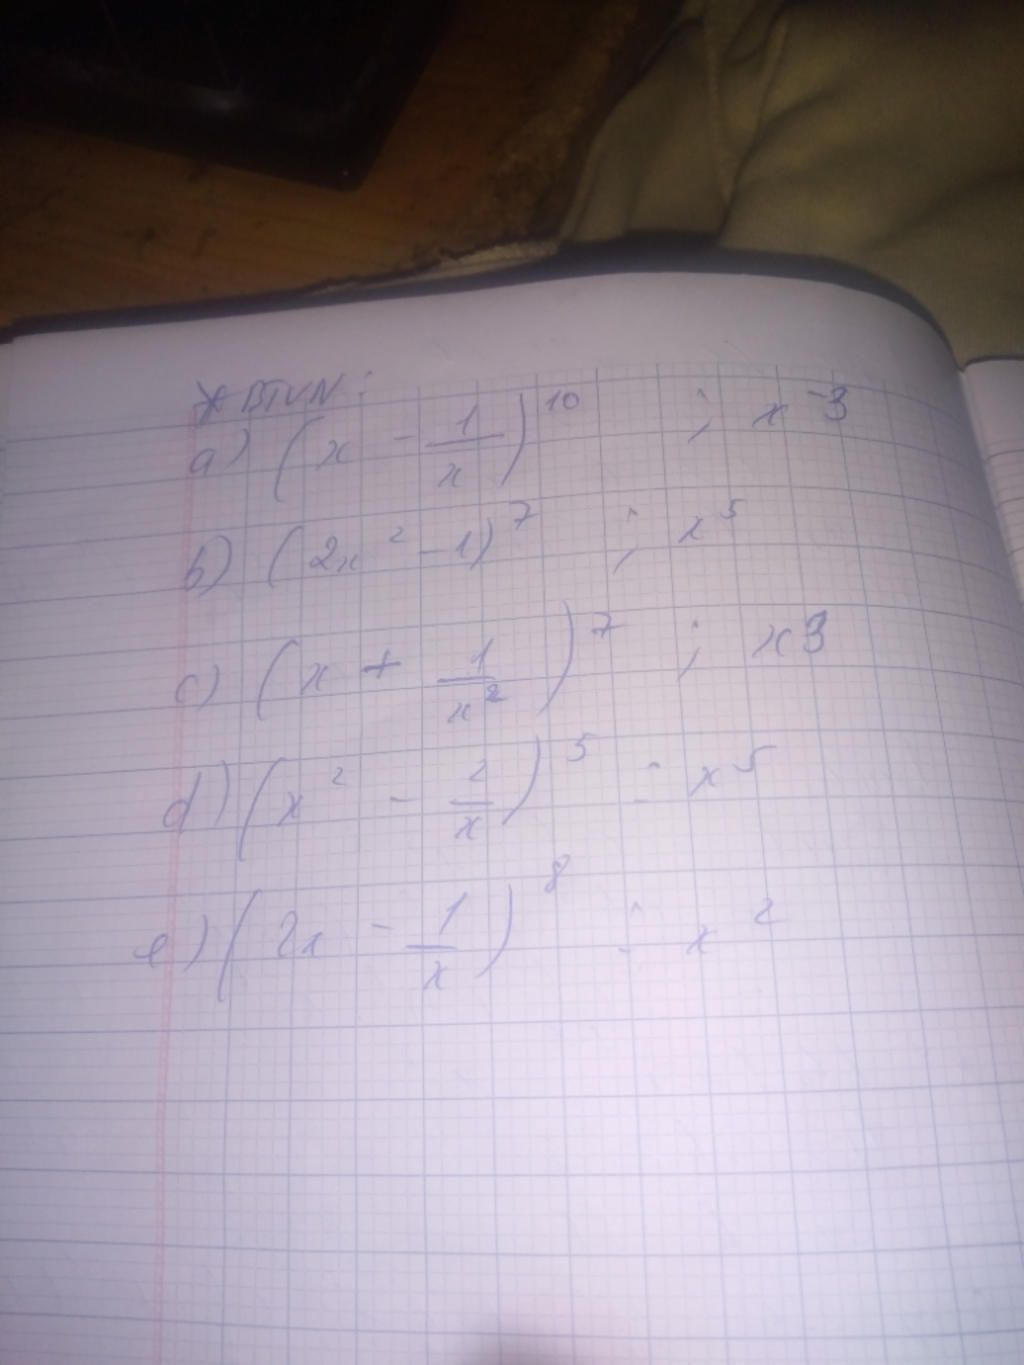 * BTVN:
a) (x - 1/x)^10 ; x^-3
b) (2x^2 - 1)^7 ; x^5
c) (x + 1/x^2)^7 ; x3
d) (x^2 - 2/x)^5 : x^5
e) (2x - 1/x)^8 : x^2